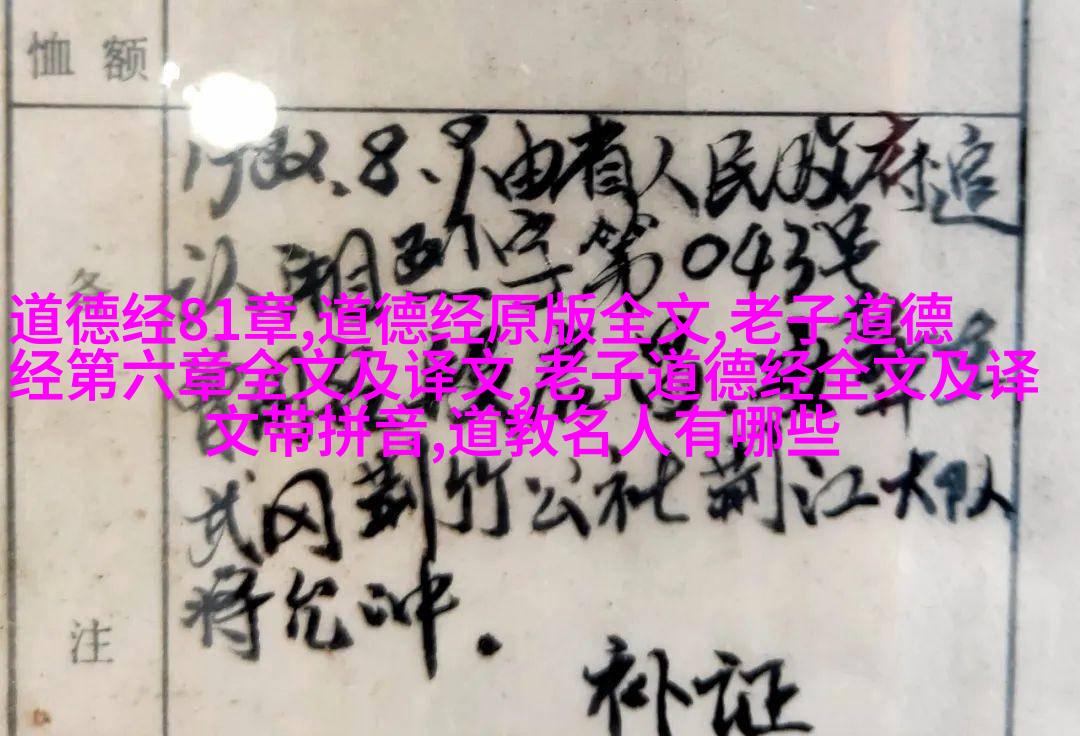 恤额
由省人民政府追
认湘烈字第043号
备
道德经81章,道德经原版全文,老子道德
经第六章全文及译文,老子道德经全文及译
文带拼音,道教名人有哪些
武冈荆竹公社荆江大队
注
补证